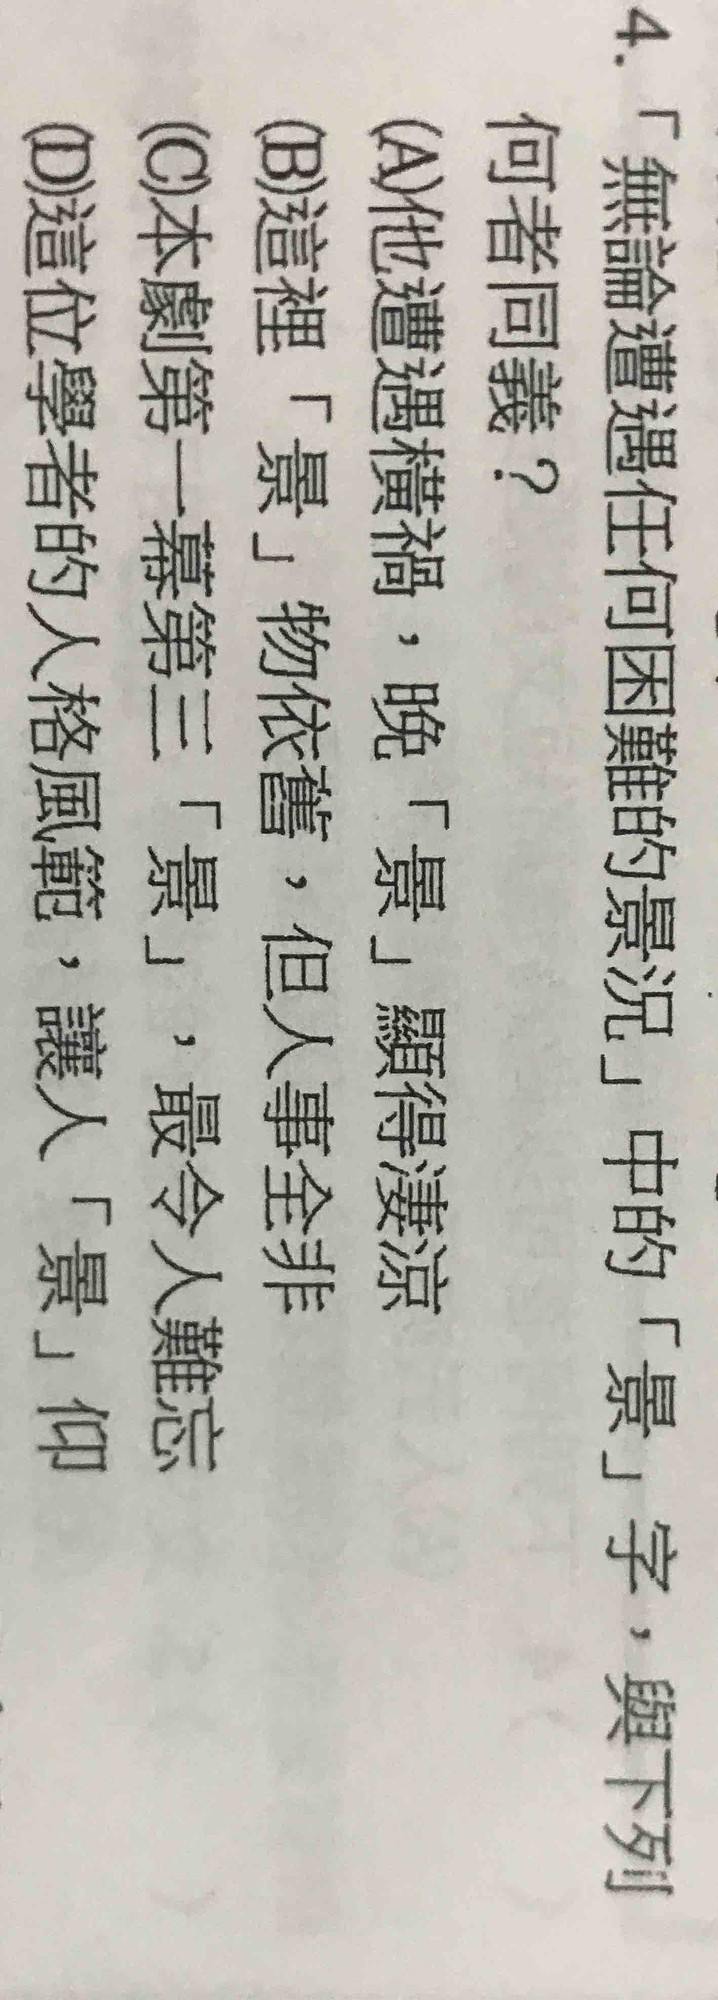 4.「無論遭遇任何困難的景況」中的「景」字，與下列
何者同義？
(A)他遭遇橫禍，晚「景」顯得淒涼
(B)這裡「景」物依舊，但人事全非
(C)本劇第一幕第三「景」，最令人難忘
(D)這位學者的人格風範，讓人「景」仰